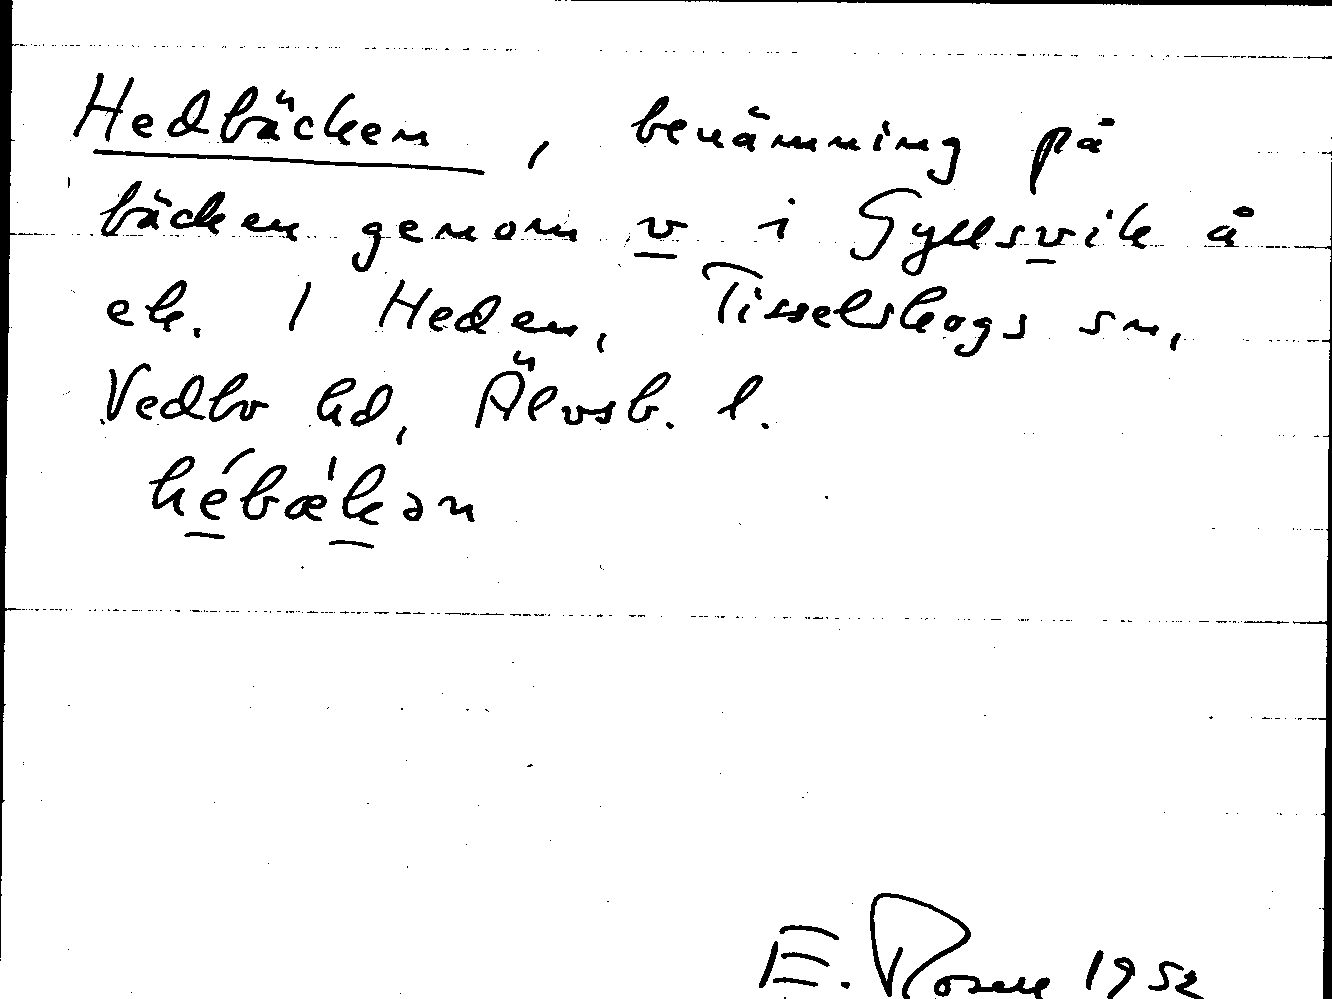 Hedbäcken, benämning på
bäcken genom v i Gyllsvik å
ek. 1 Heden, Tisselskogs sn,
Vedbo hd, Älvsb. l.
hébæ̀kən
E. Rosell 1952